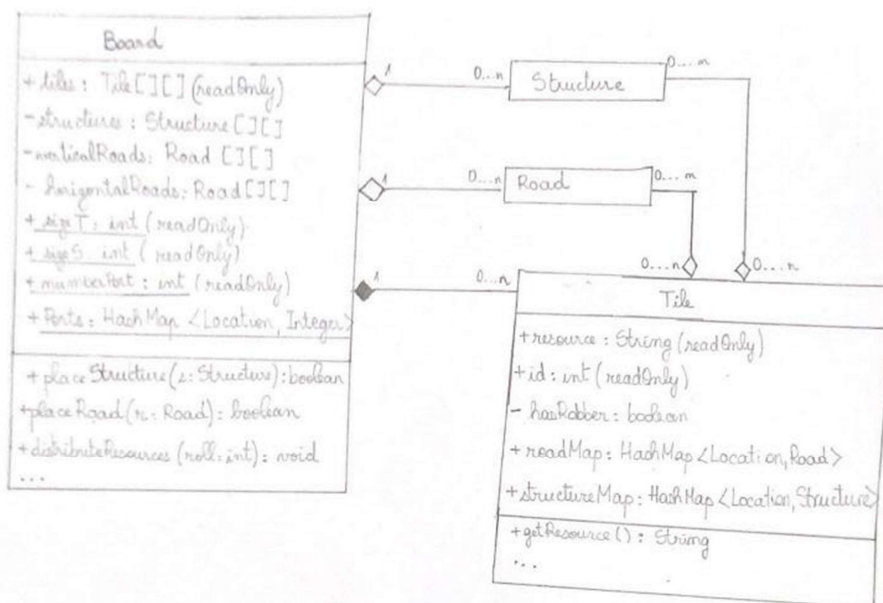 Board
+ tiles : Tile[][] (readOnly)
- structures : Structure[][]
- verticalRoads : Road [][]
- horizontalRoads : Road[][]
+ sizeT : int (readOnly)
+ sizeS : int (readOnly)
+ numberPort : int (readOnly)
+ Ports : HashMap <Location, Integer>
+ placeStructure(s : Structure) : boolean
+ placeRoad(r : Road) : boolean
+ distributeResources (roll : int) : void
...
1 0...n
Structure
0...m
1 0...n
Road
0...m
0...n 0...n
1 0...n
Tile
+ resource : String (readOnly)
+ id : int (readOnly)
- hasRobber : boolean
+ roadMap : HashMap <Location, Road>
+ structureMap : HashMap <Location, Structure>
+ getResource() : String
...